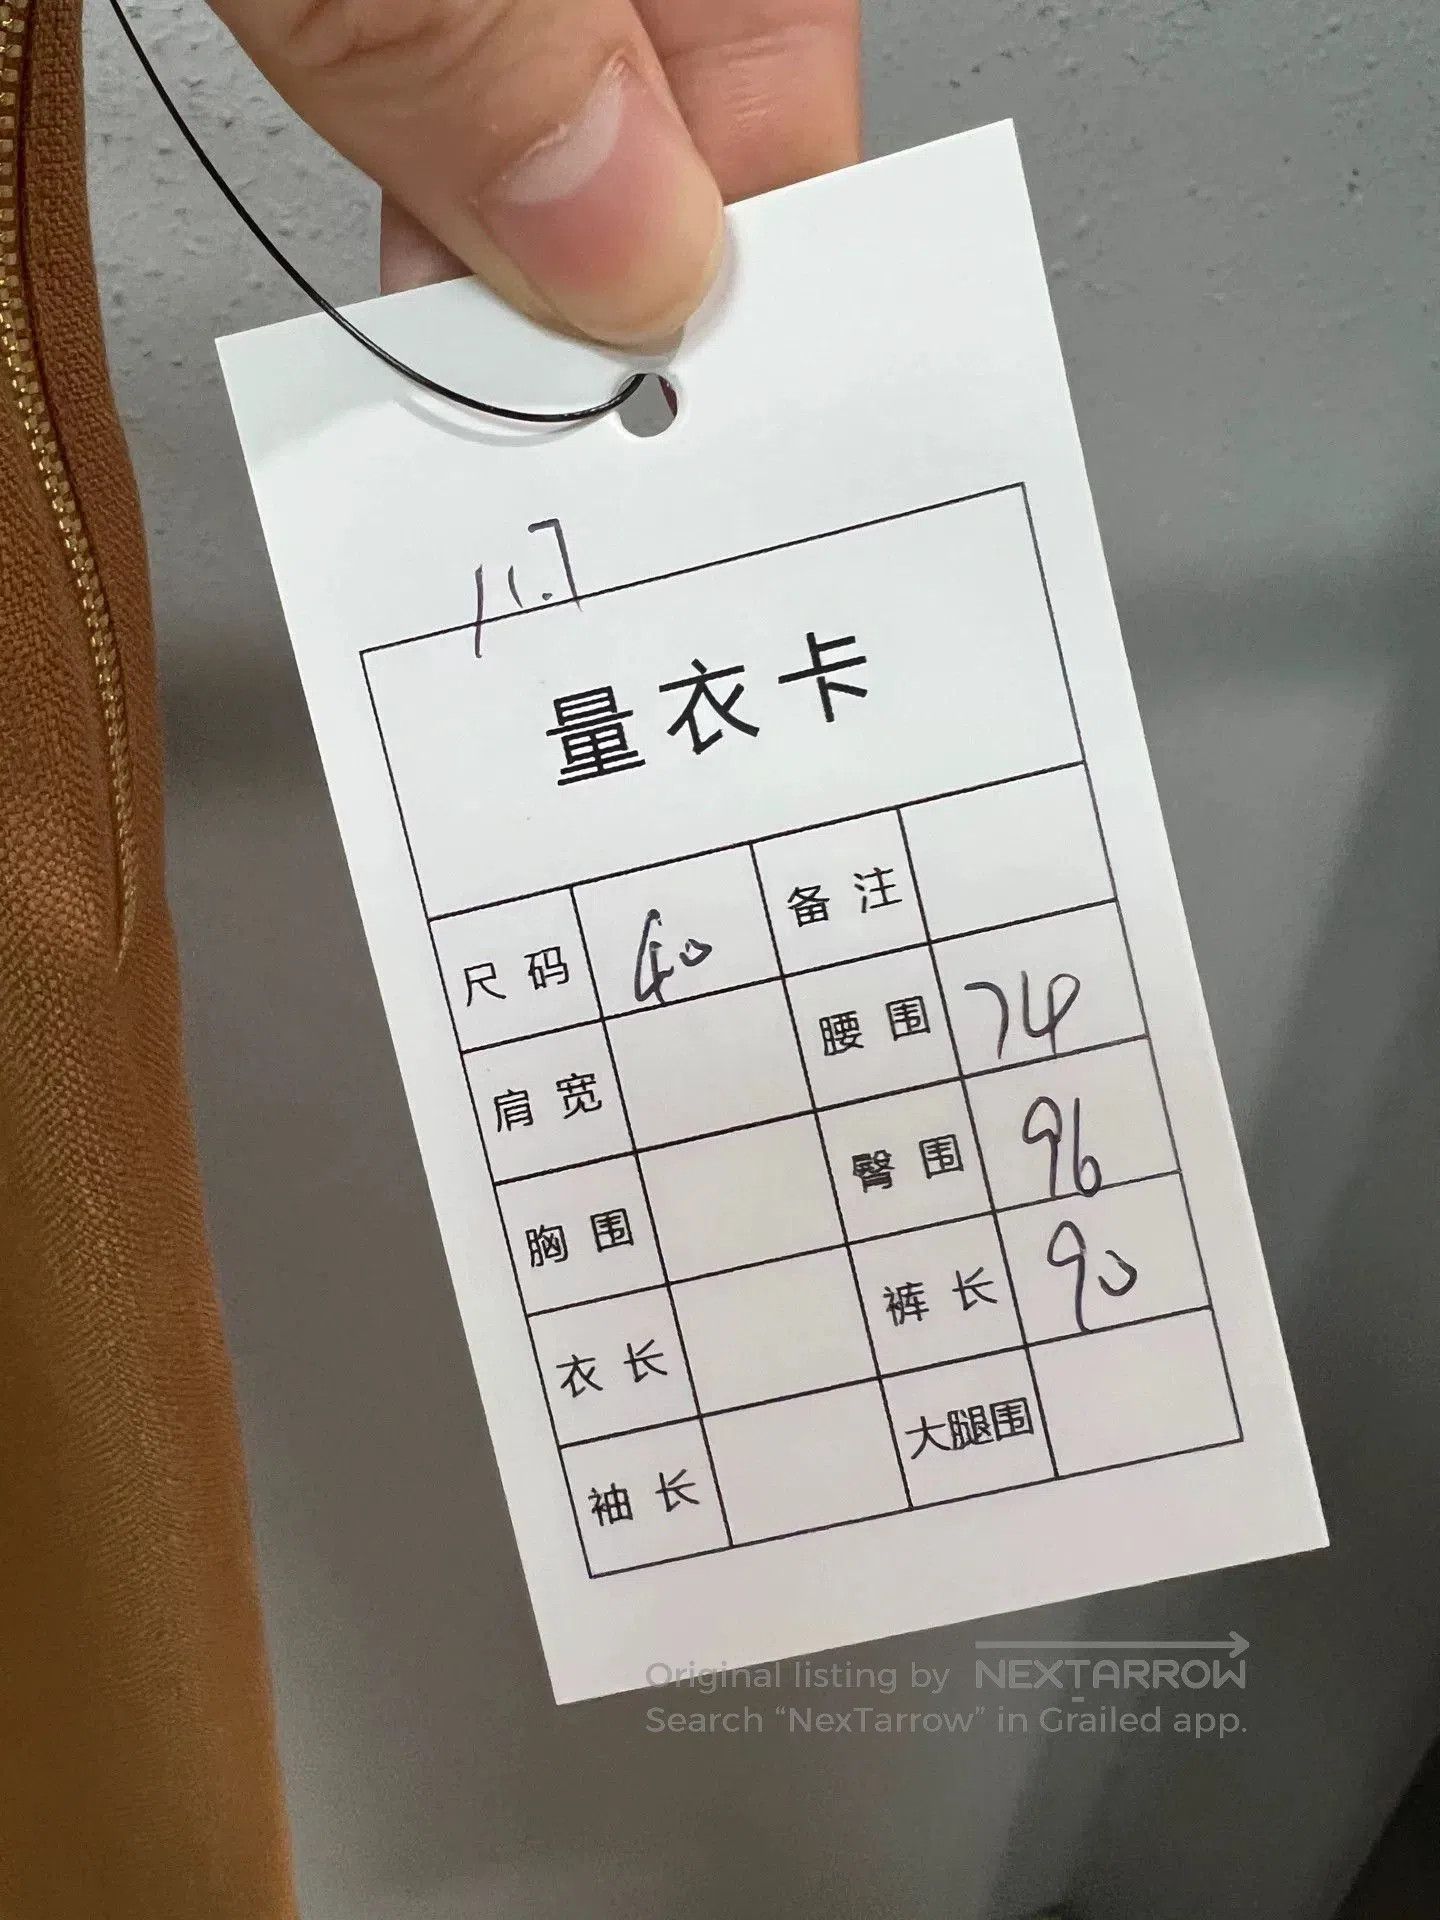 11.7
量衣卡
尺码 40 备注
肩宽 腰围 74
胸围 臀围 96
衣长 裤长 90
袖长 大腿围
Original listing by NEXTARROW
Search “NexTarrow” in Grailed app.